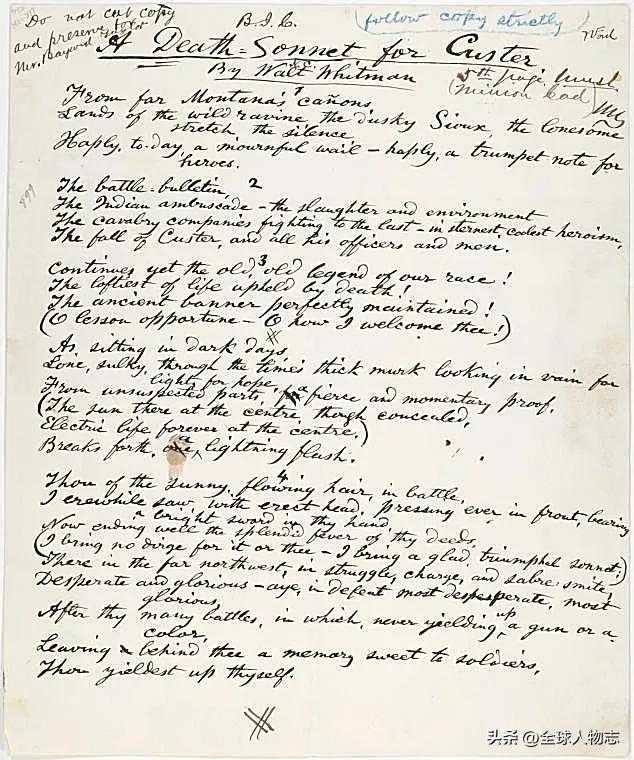 Do not cut copy
and present to
Mr. Bayard
B.I.C.
follow copy strictly
A Death-Sonnet for Custer.
By Walt Whitman
5th page must
(minion lead)
1
From far Montana's cañons,
Lands of the wild ravine, the dusky Sioux, the lonesome
stretch, the silence,
Haply, to-day, a mournful wail — haply, a trumpet note for
heroes.
2
The battle-bulletin,
The Indian ambuscade — the slaughter and environment
The cavalry companies fighting to the last — in sternest, coolest heroism,
The fall of Custer, and all his officers and men.
3
Continues yet the old, old legend of our race!
The loftiest of life upheld by death!
The ancient banner perfectly maintained!
(O lesson opportune — O how I welcome thee!)
As, sitting in dark days,
Lone, sulky, through the time's thick murk looking in vain for
light, for hope,
From unsuspected parts, a fierce and momentary proof,
(The sun there at the centre, though concealed,
Electric life forever at the centre,)
Breaks forth, a lightning flash.
4
Thou of the sunny, flowing hair, in battle,
I erewhile saw, with erect head, pressing ever in front, bearing
a bright sword in thy hand,
Now ending well the splendid fever of thy deeds,
(I bring no dirge for it or thee — I bring a glad, triumphal sonnet;)
There in the far northwest, in struggle, charge, and sabre-smite,
Desperate and glorious — aye, in defeat most desperate, most
glorious,
After thy many battles, in which, never yielding up a gun or a
color,
Leaving behind thee a memory sweet to soldiers,
Thou yieldest up thyself.
头条 @全球人物志